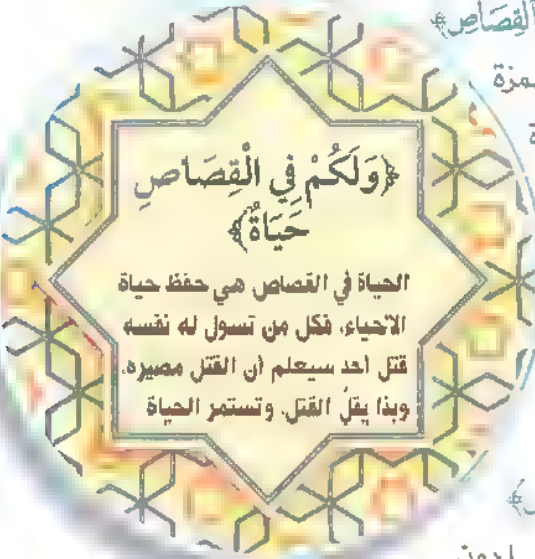 الْقِصَاصِ﴾
﴿وَلَكُمْ فِي الْقِصَاصِ
حَيَاةٌ﴾
الحياة في القصاص هي حفظ حياة
الأحياء، فكل من تسول له نفسه
قتل أحد سيعلم أن القتل مصيره.
وبذا يقلُ القتل. وتستمر الحياة